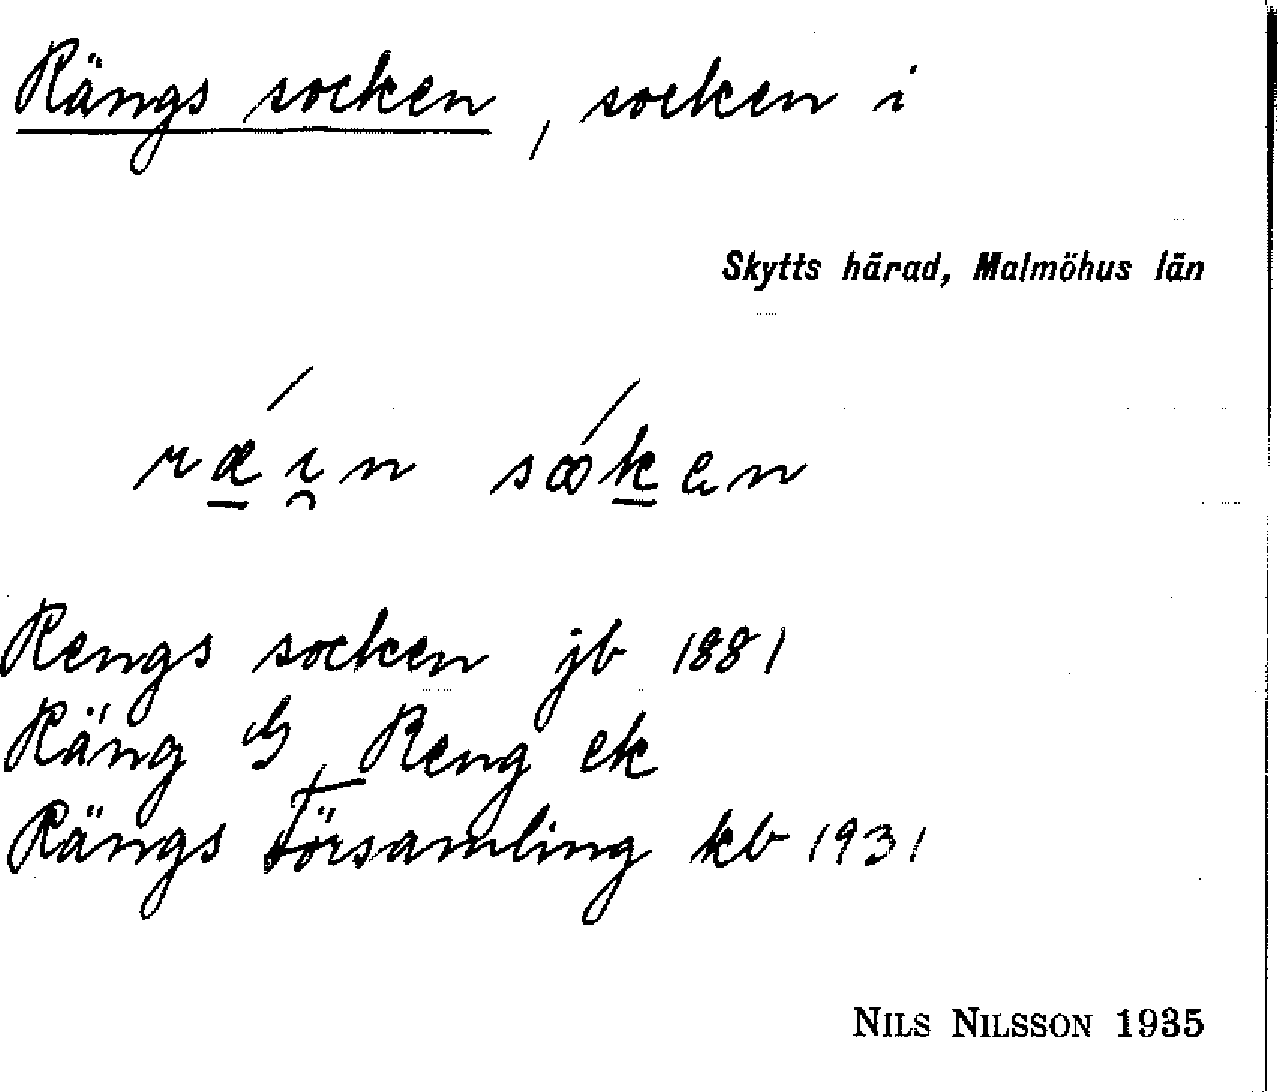 Rängs socken, socken i
Skytts härad, Malmöhus län
ræ̱ı̯n sooḵen
Rengs socken jb 1881
Räng G, Reng ek
Rängs Församling kb 1931
NILS NILSSON 1935